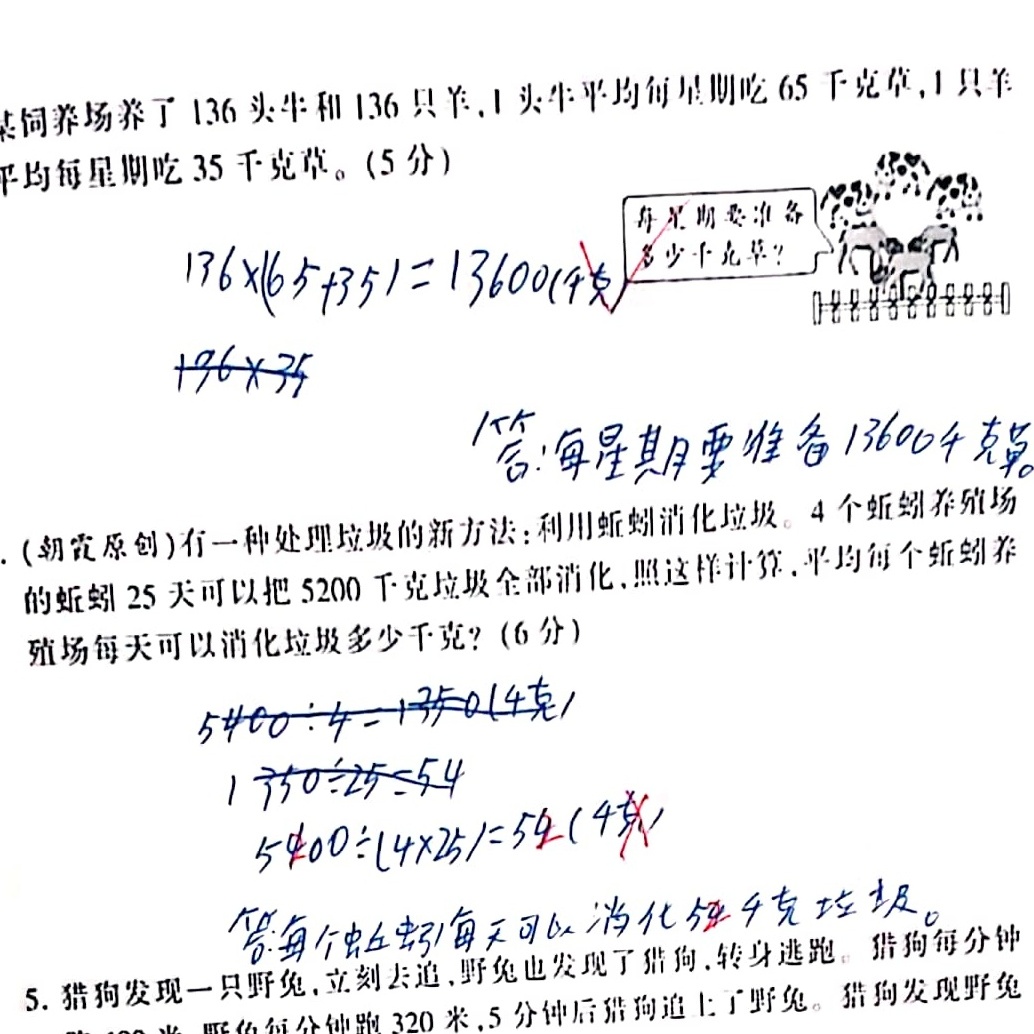 某饲养场养了 136 头牛和 136 只羊,1 头牛平均每星期吃 65 千克草,1 只羊
平均每星期吃 35 千克草。(5 分)
每星期要准备
多少千克草?
136×(65+35)=13600(千克)
136×35
答:每星期要准备13600千克草。
. (朝霞原创)有一种处理垃圾的新方法:利用蚯蚓消化垃圾。4 个蚯蚓养殖场
的蚯蚓 25 天可以把 5200 千克垃圾全部消化,照这样计算,平均每个蚯蚓养
殖场每天可以消化垃圾多少千克? (6 分)
5400÷4=1350(千克)
1350÷25=54
5200÷(4×25)=52(千克)
答:每个蚯蚓每天可以消化52千克垃圾。
5. 猎狗发现一只野兔,立刻去追,野兔也发现了猎狗,转身逃跑。猎狗每分钟
米,野兔每分钟跑 320 米,5 分钟后猎狗追上了野兔。猎狗发现野兔